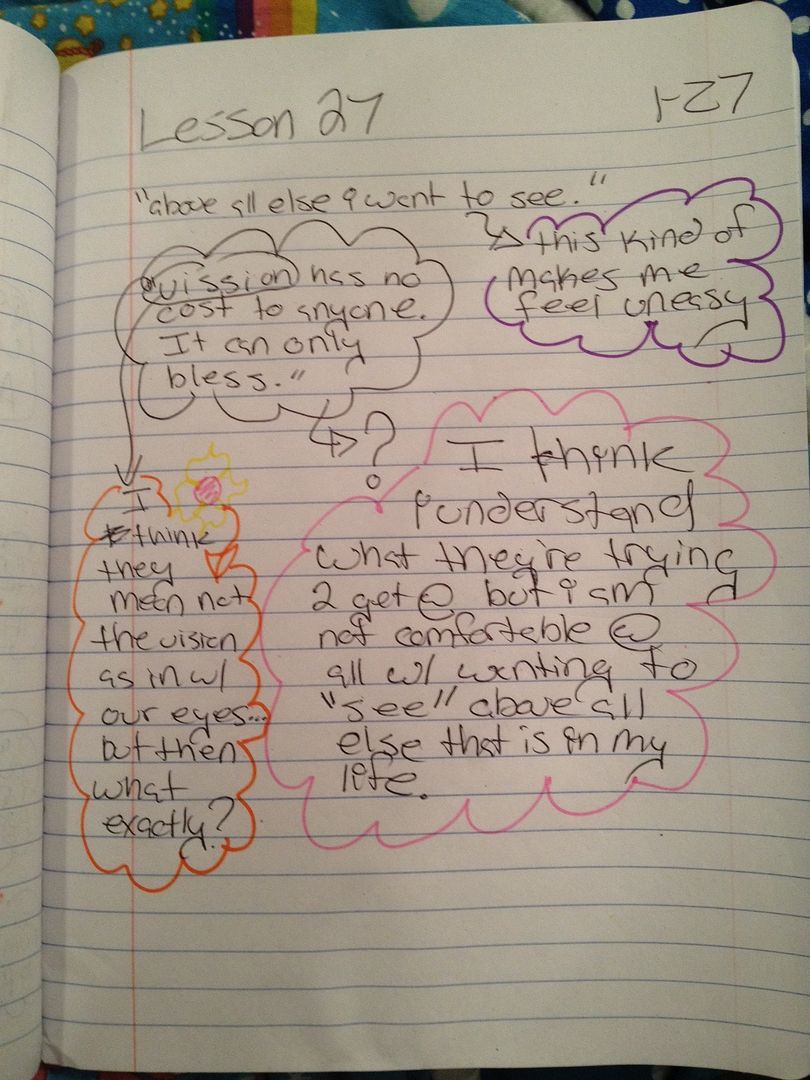 Lesson 27
1-27
"above all else i want to see."
this kind of
makes me
feel uneasy
"vission has no
cost to anyone.
It can only
bless."
?
I
think
they
mean not
the vision
as in w/
our eyes...
but then
what
exactly?
I think
i understand
what they're trying
2 get @ but i am
not comfortable @
all w/ wanting to
"see" above all
else that is in my
life.